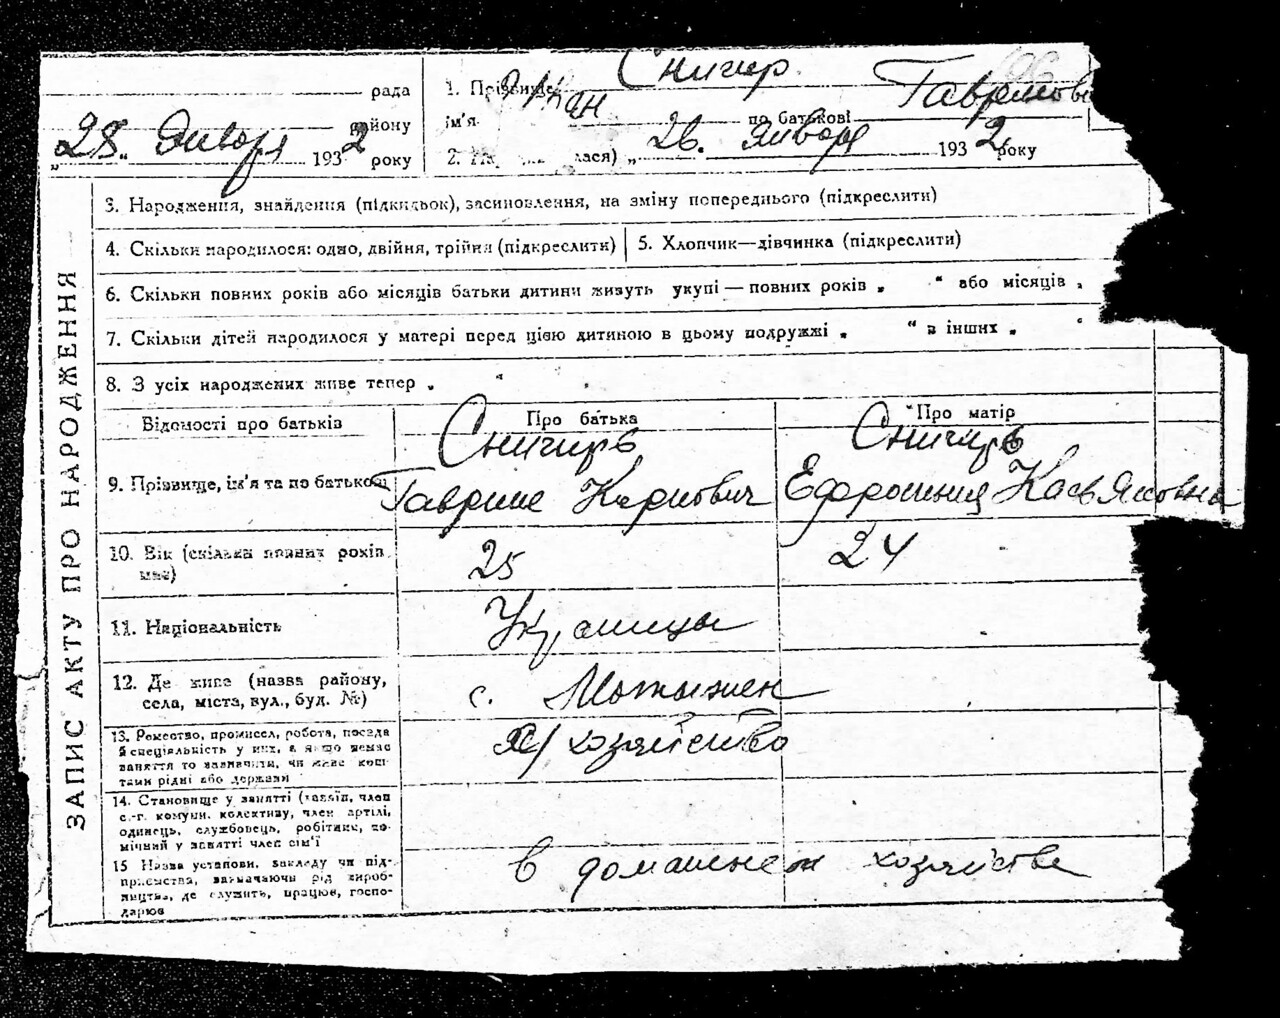 Снигир
рада
1. Прізвище
Гаврилов
району
ім'я
по батькові
„28“ Января 1932 року
лася) „ 26. Января 1932 року
ЗАПИС АКТУ ПРО НАРОДЖЕННЯ
3. Народження, знайдення (підкидьок), засиновлення, на зміну попереднього (підкреслити)
4. Скільки народилося: одно, двійня, трійня (підкреслити)
5. Хлопчик—дівчинка (підкреслити)
6. Скільки повних років або місяців батьки дитини живуть укупі — повних років „ “ або місяців „
7. Скільки дітей народилося у матері перед цією дитиною в цьому подружжі „ “ в інших „ “
8. З усіх народжених живе тепер „ “ .
Відомості про батьків
Про батька
Про матір
Снигирь
Снигирь
9. Прізвище, ім'я та по батькові
Гаврило Карпович
Ефросиния Касьяновна
10. Вік (скільки повних років має)
25
24
11. Національність
Украинцы
12. Де живе (назва району,
села, міста, вул., буд. №)
с. Мотыжин
13. Ремество, промисел, робота, посада
й спеціяльність у них, а якщо немає
заняття то зазначити, чи живе кош-
тами рідні або держави
с/хозяйство
14. Становище у занятті (хазяїн, член
с.-г. комуни, колективу, член артілі,
одинець, службовець, робітник, по-
мічний у занятті член сім'ї
15 Назва установи, закладу чи під-
приємства, зазначаючи рід вироб-
ництва, де служить, працює, госпо-
дарює
в домашнем хозяйстве